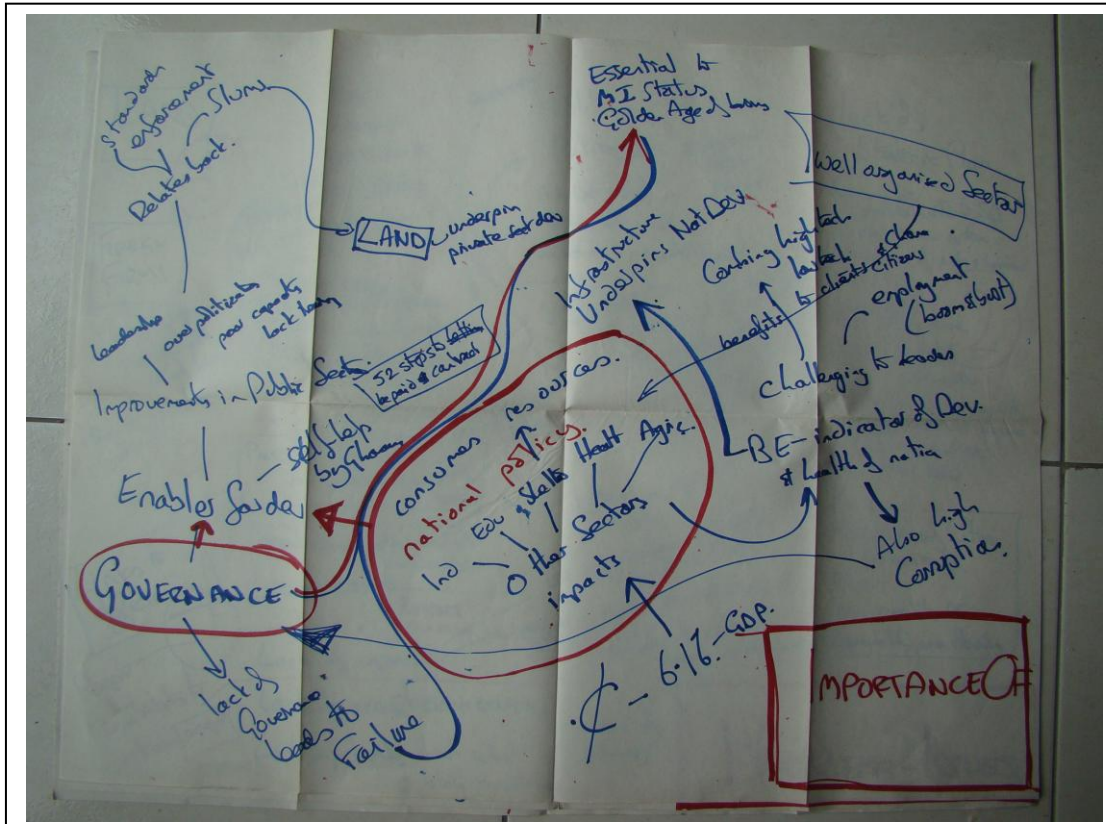 Standards
enforcement
Slums
Relates back.
LAND
underpin
private sect dev
Essential to
MI Status
Golden Age of
Well organised Sector
Infrastructure
Underpins Nat Dev.
Combining high tech
low tech
benefits to clients &
citizens
employment
(boom & bust)
challenging to leaders
Leadership
over politicised
poor capacity
lack
Improvements in Public Sector
52 steps to
be paid & contract
self-help
by
Enables
GOVERNANCE
lack of
Governance
leads to
Failure
consumes resources.
national policies.
Ind
Edu
Shelter
Health
Agric.
Other Sectors
impacts
BE - indicator of Dev.
& health of nation
Also high
Corruption.
₵ - 6.1%. - GDP.
IMPORTANCE OF